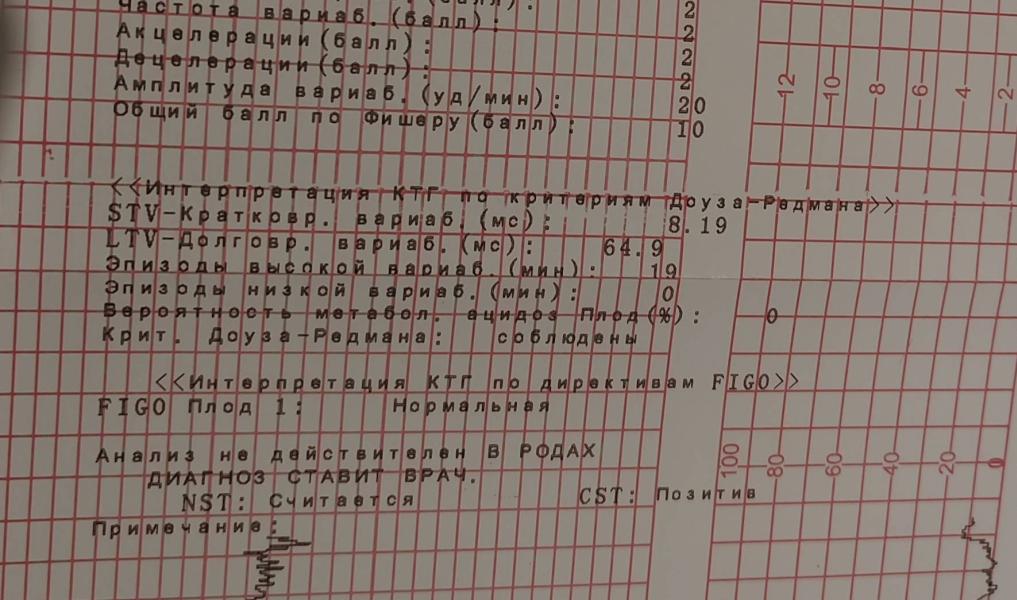 Частота вариаб. (балл): 2
Акцелерации (балл): 2
Децелерации (балл): 2
Амплитуда вариаб. (уд/мин): 20
Общий балл по Фишеру (балл): 10
<<Интерпретация КТГ по критериям Доуза-Редмана>>
STV-Кратковр. вариаб. (мс): 8.19
LTV-Долговр. вариаб. (мс): 64.9
Эпизоды высокой вариаб. (мин): 19
Эпизоды низкой вариаб. (мин): 0
Вероятность метабол. ацидоз Плод (%): 0
Крит. Доуза-Редмана: соблюдены
<<Интерпретация КТГ по директивам FIGO>>
FIGO Плод 1: Нормальная
Анализ не действителен В РОДАХ
ДИАГНОЗ СТАВИТ ВРАЧ.
NST: Считается CST: Позитив
Примечание:
12 10 8 6 4 2
100 80 60 40 20 0